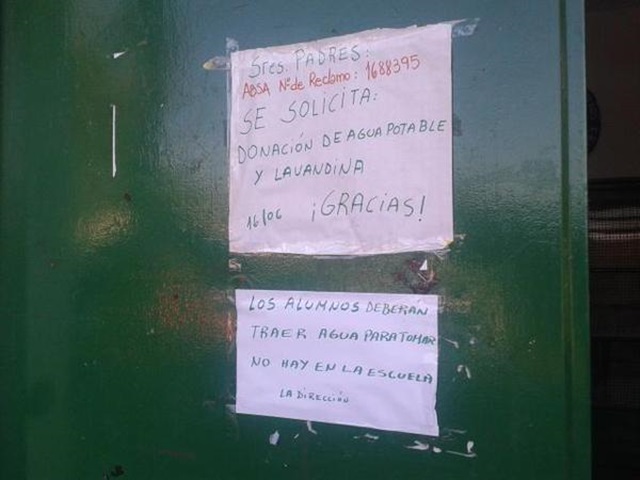 Sres. PADRES:
ABSA Nº de Reclamo: 1688395
SE SOLICITA:
DONACIÓN DE AGUA POTABLE
Y LAVANDINA
16/06 ¡GRACIAS!
LOS ALUMNOS DEBERÁN
TRAER AGUA PARA TOMAR
NO HAY EN LA ESCUELA
LA DIRECCIÓN